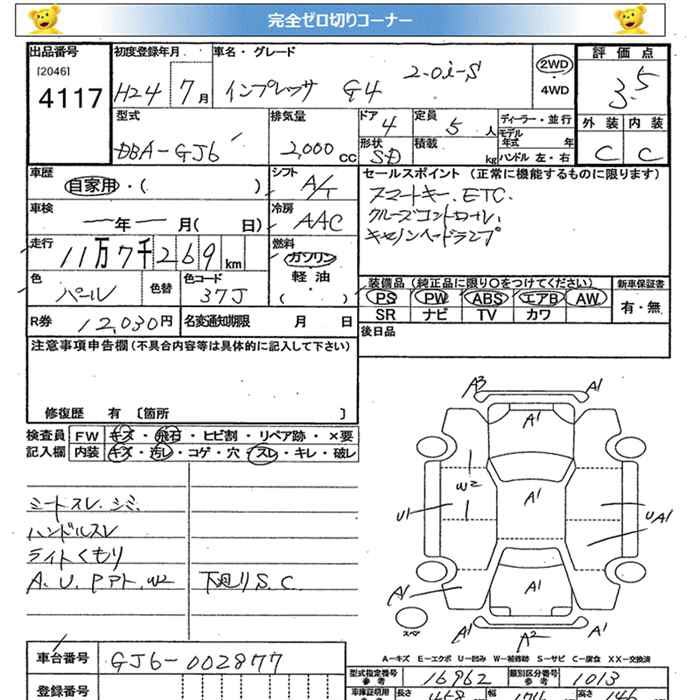 完全ゼロ切りコーナー
出品番号 初度登録年月 車名・グレード 評価点
[2046]
4117 H24 7月 インプレッサ G4 2.0i-S 2WD・4WD 3.5
型式 排気量 ドア 4 定員 5人 ディーラー・並行 外装 内装
モデル年式 年
DBA-GJ6 2,000cc 形状 SD 積載 kg ハンドル 左・右 C C
車歴 シフト セールスポイント (正常に機能するものに限ります)
自家用・( ) A/T スマートキー、ETC、
車検 冷房 クルーズコントロール、
ー年ー月( 日) AAC キセノンヘッドランプ
走行 燃料
11万7千269km ガソリン
軽油
( )
色 パール 色替 色コード 37J
装備品 (純正品に限り○をつけてください) 新車保証書
PS PW ABS エアB AW 有・無
SR ナビ TV カワ
R券 12,030円 名変通知期限 月 日 後日品
注意事項申告欄(不具合内容等は具体的に記入して下さい)
修復歴 有 〔箇所 〕
検査員 FW キズ・飛石・ヒビ割・リペア跡・×要
記入欄 内装 キズ・汚レ・コゲ・穴・スレ・キレ・破レ
シートスレ、シミ、
ハンドルスレ
ライトくもり
A、U、Pアト、W2 下廻りS、C
A3 A1
A1
W2
A1
U1 UA1
A1
A1
スペア
A1 A2 A1
A-キズ E-エクボ U-凹み W-補修跡 S-サビ C-腐食 XX-交換済
車台番号 GJ6-002877
型式指定番号 参考 16962 類別区分番号 参考 1013
登録番号
車庫証明用 長さ 458 幅 高さ 146